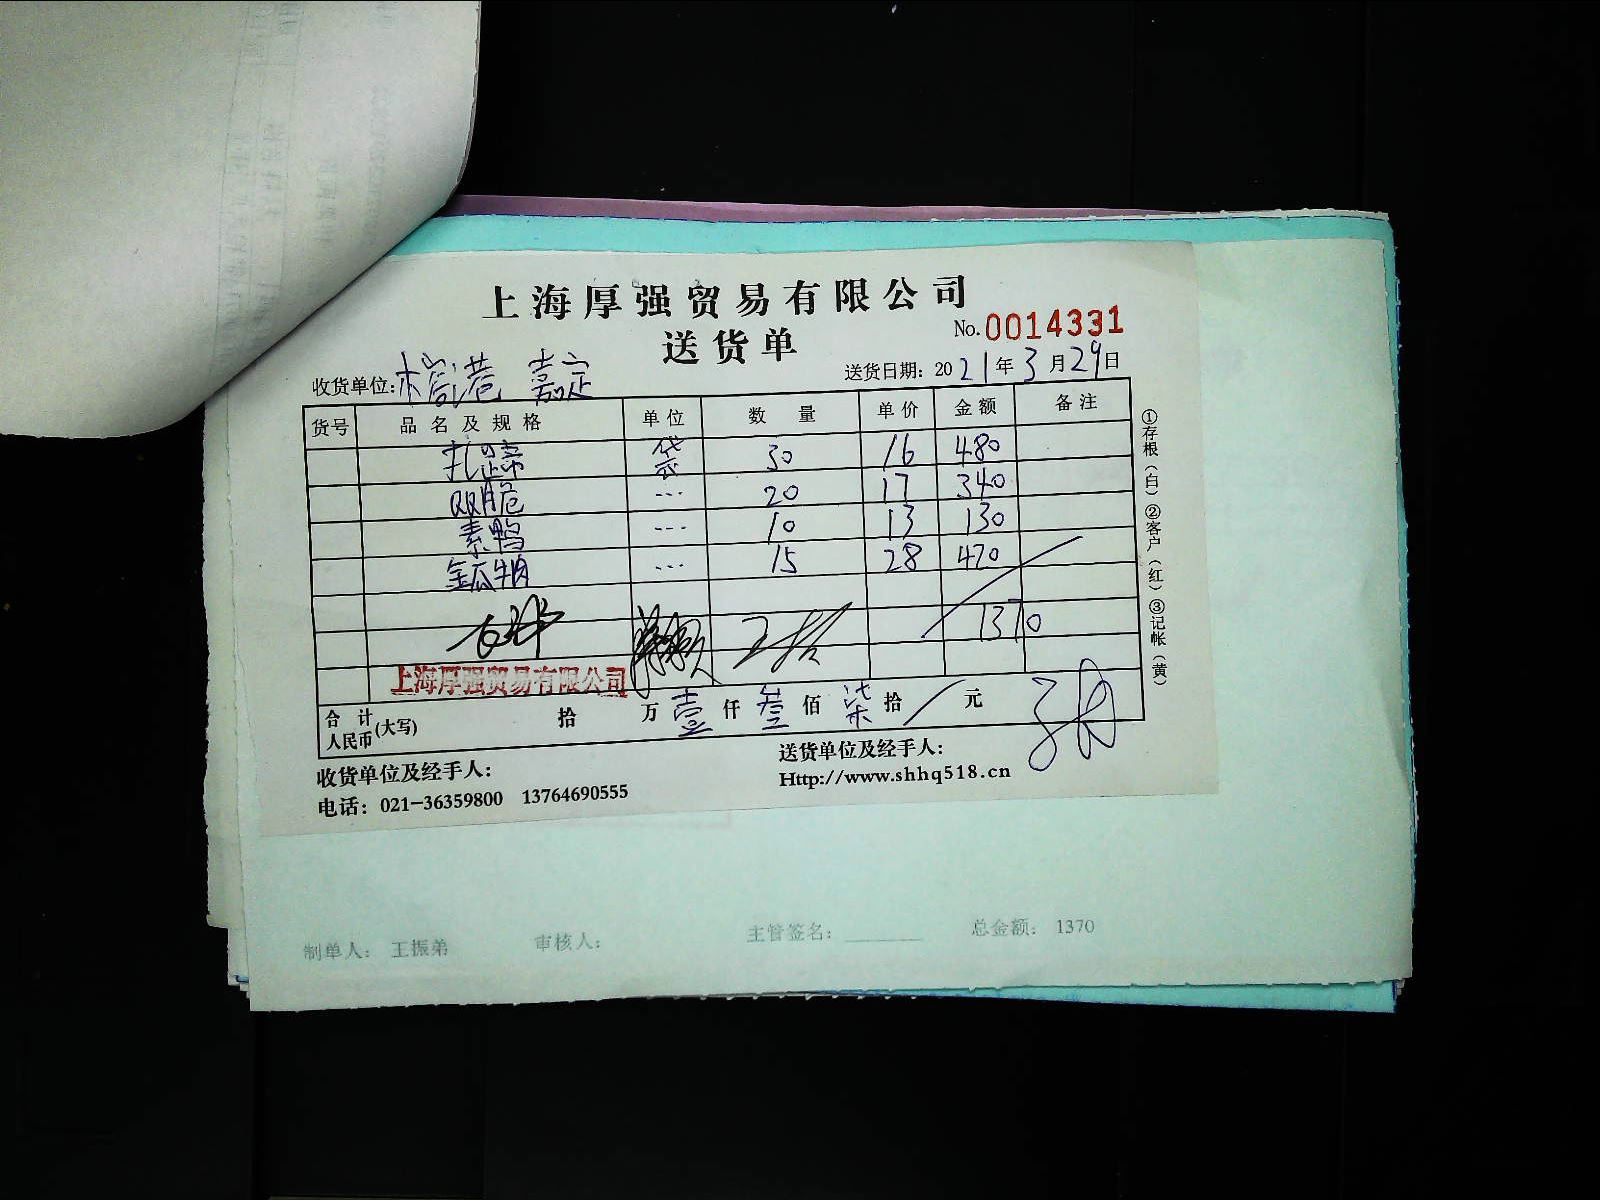 上海厚强贸易有限公司
送货单
No.0014331
收货单位: 嘉定
送货日期: 2021年3月29日
货号 品名及规格 单位 数量 单价 金额 备注
扎蹄 袋 30 16 480
双脆 --- 20 17 340
素鸭 --- 10 13 130
金瓜牛肉 --- 15 28 420
1370
上海厚强贸易有限公司
合计人民币(大写) 拾 万 壹 仟 叁 佰 柒 拾 元
①存根(白)②客户(红)③记帐(黄)
收货单位及经手人:
送货单位及经手人:
电话: 021-36359800 13764690555
Http://www.shhq518.cn
制单人: 王振弟 审核人: 主管签名: 总金额: 1370